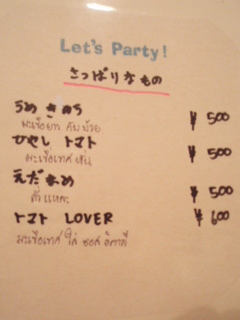 Let's Party!
さっぱりなもの
うめ きゅう ¥500
มะเขือยาว กับ บ๊วย
ひやし トマト ¥500
มะเขือเทศ เย็น
えだまめ ¥500
ถั่วแระ
トマト LOVER ¥600
มะเขือเทศ ใส่ ซอส